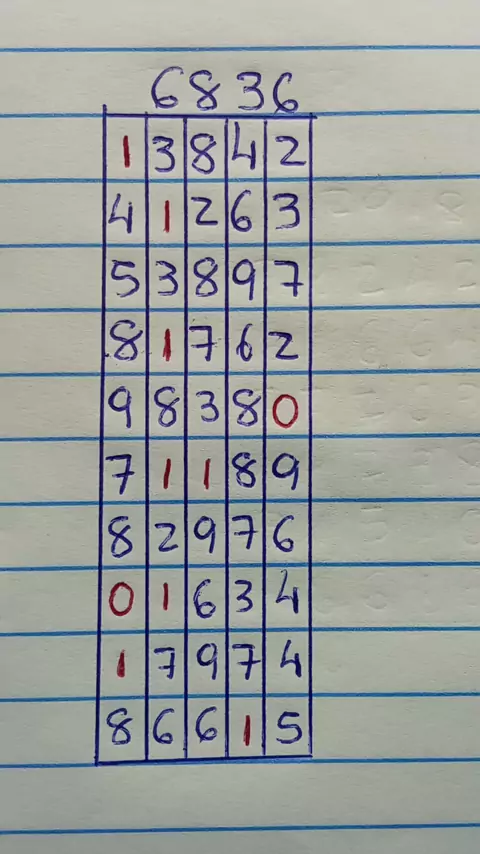 6836
1 3 8 4 2
4 1 2 6 3
5 3 8 9 7
8 1 7 6 2
9 8 3 8 0
7 1 1 8 9
8 2 9 7 6
0 1 6 3 4
1 7 9 7 4
8 6 6 1 5